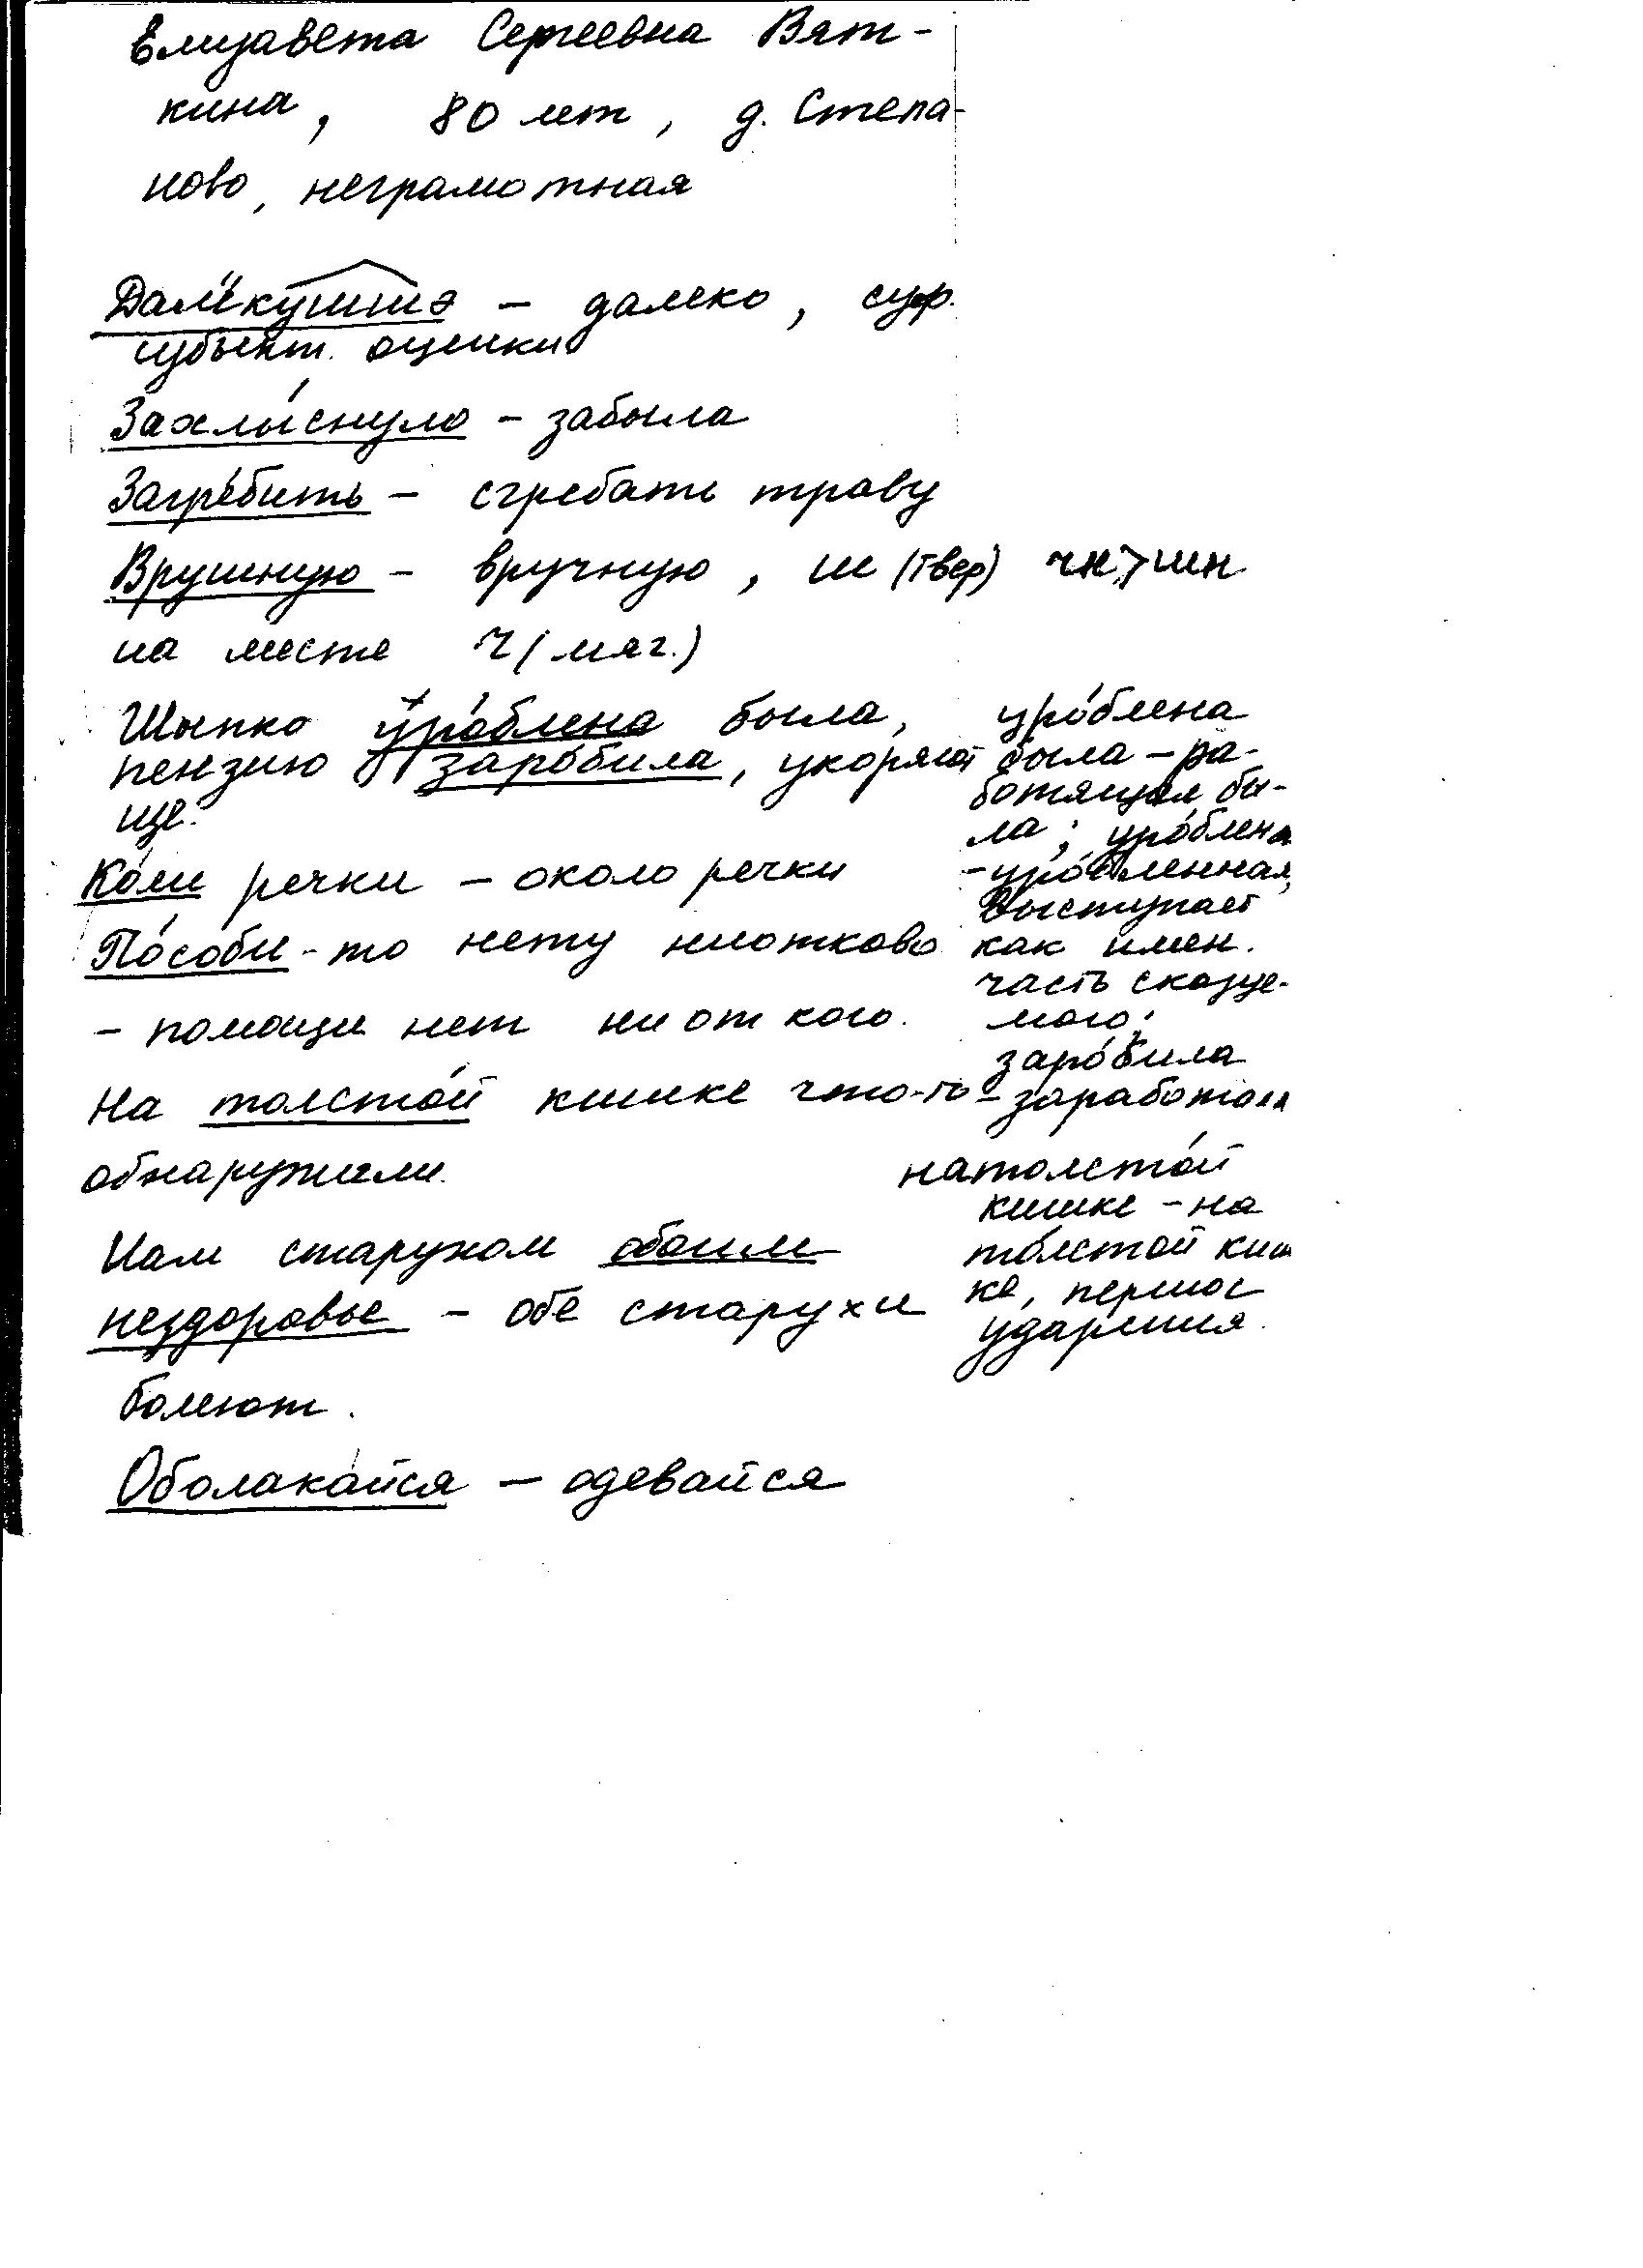 Елизавета Сергеевна Вят-
кина, 80 лет, д. Степа-
ново, неграмотная
Далёку́шшэ – далеко, суф.
субъект. оценки
Захлы́снуло – забыла
Загре́бить – сгребать траву
Врушную – вручную, ш (твер) чн > шн
на месте ч (мяг.)
Шыпко уро́блена была,
пензию заро́била, укоряют
ище.
Ко́ли речки – около речки
По́соби-то нету ниотково
– помощи нет ни от кого.
На толсто́й кишке что-то
обнаружили.
Нам старухам обоим
нездоровье – обе старухи
болеют.
Оболака́йся – одевайся
уро́блена
была – ра-
ботящая бы-
ла; уро́блена
– уро́бленная,
выступает
как имен.
часть сказуе-
мого;
заро́била
– заработала
на толсто́й
кишке – на
то́лстой киш
ке, перенос
ударения.